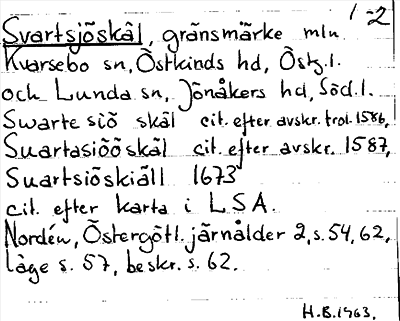 1-2
Svartsjöskäl, gränsmärke mln
Kvarsebo sn, Östkinds hd, Östg.l.
och Lunda sn, Jönåkers hd, Söd.l.
Swarte siö skäl cit. efter avskr. trol. 1586,
Suartasiöö skäl cit. efter avskr. 1587,
Suartsiöskiäll 1673
cit. efter karta i LSA.
Nordén, Östergötl. järnålder 2, s. 54, 62,
läge s. 57, beskr. s. 62.
H.B. 1963.